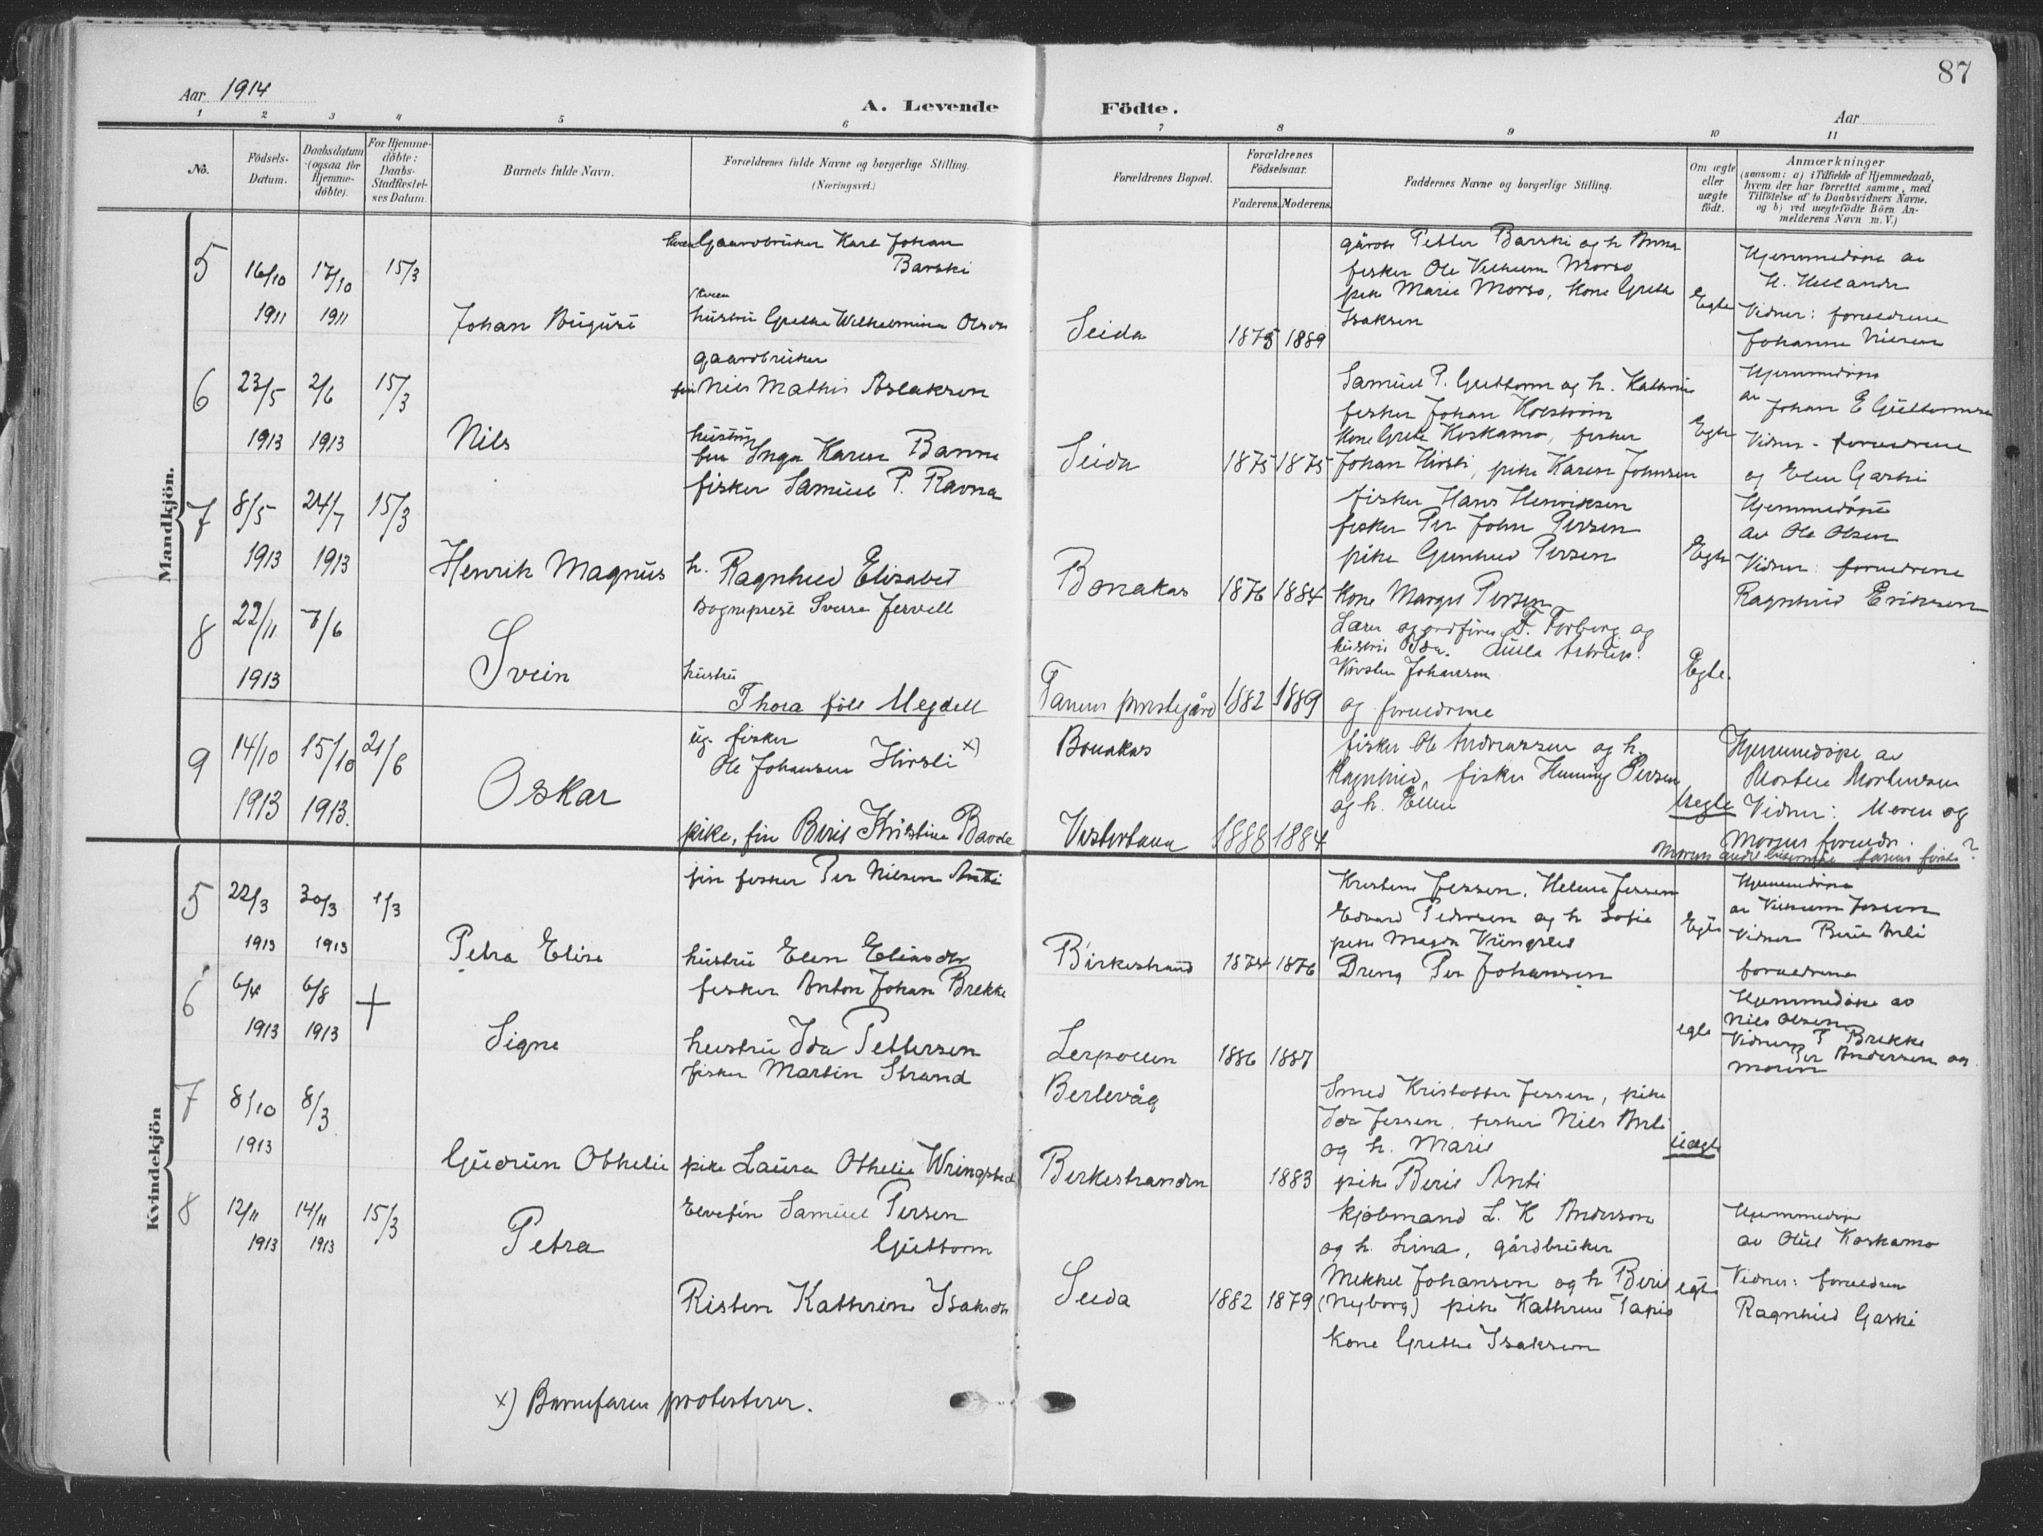 87
Aar 1914
A. Levende Födte.
Aar
1 2 3 4 5 6 7 8 9 10 11
No.
Födsels-Datum.
Daabsdatum (ogsaa for Hjemmedöbte).
For Hjemmedöbte: Daabs-Stadfæstelses Datum.
Barnets fulde Navn.
Forældrenes fulde Navne og borgerlige Stilling.
(Næringsvei.)
Forældrenes Bopæl.
Forældrenes Födselsaar.
Faderens. Moderens.
Faddernes Navne og borgerlige Stilling.
Om ægte eller uægte födt.
Anmærkninger
(saasom: a) i Tilfælde af Hjemmedaab,
hvem der har forrettet samme, med
Tilföielse af to Daabsvidners Navne,
og b) ved uægtefödte Börn An-
melderens Navn m. V.)
Mandkjön.
5 16/10 1911 17/10 1911 15/3
Johan August
Kvæn Gaardbruker Karl Johan
Barski
Kvæn
hustru Grethe Wilhelmina Olsdr
Seida 1875 1889
gårdb Petter Barski og h. Anna
fisker Ole Vilhelm Morso
pike Marie Morso, Kone Grete
Isaksen
Egte
Hjemmedöpt av
Vidner: forældrene
Johanne Nilsen
6 23/5 1913 2/6 1913 15/3
Nils
gaardbruker
fin Nils Mathis Aslaksen
hustru
fin Inga Karen Banne
Seida 1875 1875
Samuel P. Guttorm og h. Kathrine
fisker Johan Holström
Kone Grete Koskamo, fisker
Johan Hirsti, pike Karen Johnsen
Egte
Hjemmedöpt
av Johan E Guttormsen
Vidner - forældrene
og Elen Gaski
7 8/5 1913 24/7 1913 15/3
Henrik Magnus
fisker Samuel P. Ravna
h. Ragnhild Elisabet
Bonakas 1876 1884
fisker Hans Henriksen
fisker Per John Persen
pike Gunhild Persen
Kone Margit Persen
Egte
Hjemmedöpt
av Ole Olsen
Vidner: forældrene
Ragnhild Eriksen
8 22/11 1913 7/6
Svein
Sogneprest Sverre Jervell
hustru
Thora föd Mejdell
Tanens prestegård 1882 1889
Lærer og ordförer F. Forberg og
hustru Ida. Aulla Astrup.
Kirsten Johansen
og forældrene
Egte.
9 14/10 1913 15/10 1913. 21/6
Oskar
ug. fisker
Ole Johansen Hirsti x)
pike, fin Berit Kristine Baode
Bonakas
Vestertana 1888 1884
fisker Ole Andreassen og h.
Ragnhild, fisker Henning Persen
og h. Ellen
Uegte
Hjemmedöpt av
Morten Mortensen
Vidner: Moren og
Morens forældr.
Morens andet barn, farens förste?
Kvindekjön
5 22/3 1913 30/3 1913 1/3
Petra Elise
fin fisker Per Nilsen Anti
hustru Elen Eliasdtr
Birkestrand 1874 1876
Kristens Jessen, Helene Jessen
Edvard Pedersen og h Sofie
pike Magda Vringsted
Dreng Per Johansen
Egte
Hjemmedöpt
av Vilhelm Jessen
Vidner Berit Anti
forældrene
6 6/4 1913 6/8 1913 +
Signe
fisker Anton Johan Brekke
hustru Ida Pettersen
Lerpollen 1886 1887
egte
Hjemmedöpt av
Nils Olsen
Vidner P Brekke
Per Andersen og
moren
7 8/10 1913 8/3
Gudrun Othelie
fisker Martin Strand
pike Laura Othelie Wringsted
Berlevåg
Birkestranden 1883
Smed Kristoffer Jessen, pike
Ida Jessen, fisker Nils Anti
og h. Marie
pike Berit Anti
uægte
8 12/11 1913 14/11 1913 15/3
Petra
Elvefin Samuel Persen
Guttorm
Risten Kathrine Isaksdtr
Seida 1882 1879
Kjöbmand L. K Anderson
og h. Lina, gårdbruker
Mikkel Johansen og h Berit
(Nyborg) pike Kathrine Tapio
Kone Grethe Isaksen
egte
Hjemmedöpt
av Oluf Koskamo
Vidner: forældrene
Ragnhild Gaski
x) Barnefaren protesterer.